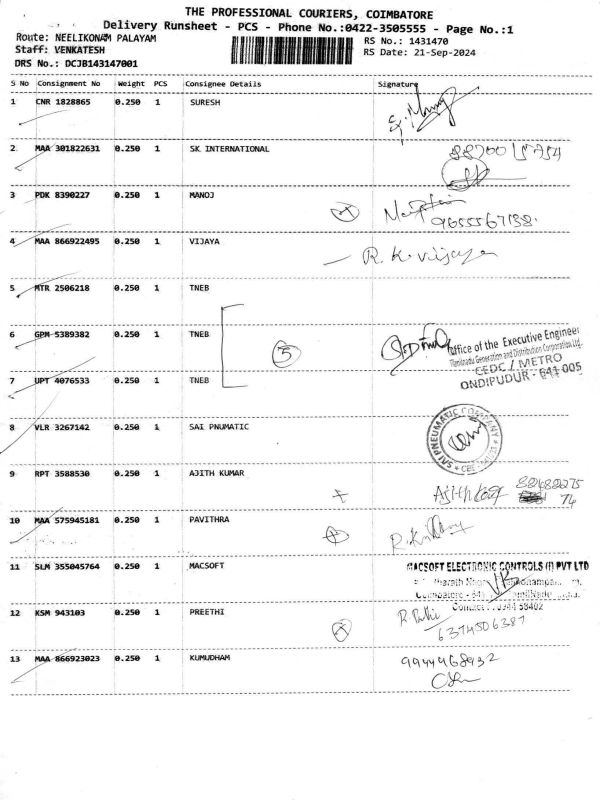 THE PROFESSIONAL COURIERS, COIMBATORE
Delivery Runsheet - PCS - Phone No.:0422-3505555 - Page No.:1
Route: NEELIKONAM PALAYAM
RS No.: 1431470
Staff: VENKATESH
RS Date: 21-Sep-2024
DRS No.: DCJB143147001
S No Consignment No Weight PCS Consignee Details Signature
1 CNR 1828865 0.250 1 SURESH
2 MAA 301822631 0.250 1 SK INTERNATIONAL
3 PDK 8390227 0.250 1 MANOJ
9655567138.
4 MAA 866922495 0.250 1 VIJAYA R.K. vijaya
5 MTR 2506218 0.250 1 TNEB
6 GPM 5389382 0.250 1 TNEB
3
Office of the Executive Engineer
Tamilnadu Generation and Distribution Corporation Ltd.
CEDC / METRO
ONDIPUDUR - 641 005
7 UPT 4076533 0.250 1 TNEB
8 VLR 3267142 0.250 1 SAI PNUMATIC
SAI PNEUMATIC COMPANY
9 RPT 3588530 0.250 1 AJITH KUMAR
74
10 MAA 575945181 0.250 1 PAVITHRA
11 SLM 355045764 0.250 1 MACSOFT
MACSOFT ELECTRONIC CONTROLS (I) PVT LTD
12 KSM 943103 0.250 1 PREETHI
6374506387
13 MAA 866923023 0.250 1 KUMUDHAM
9944968932